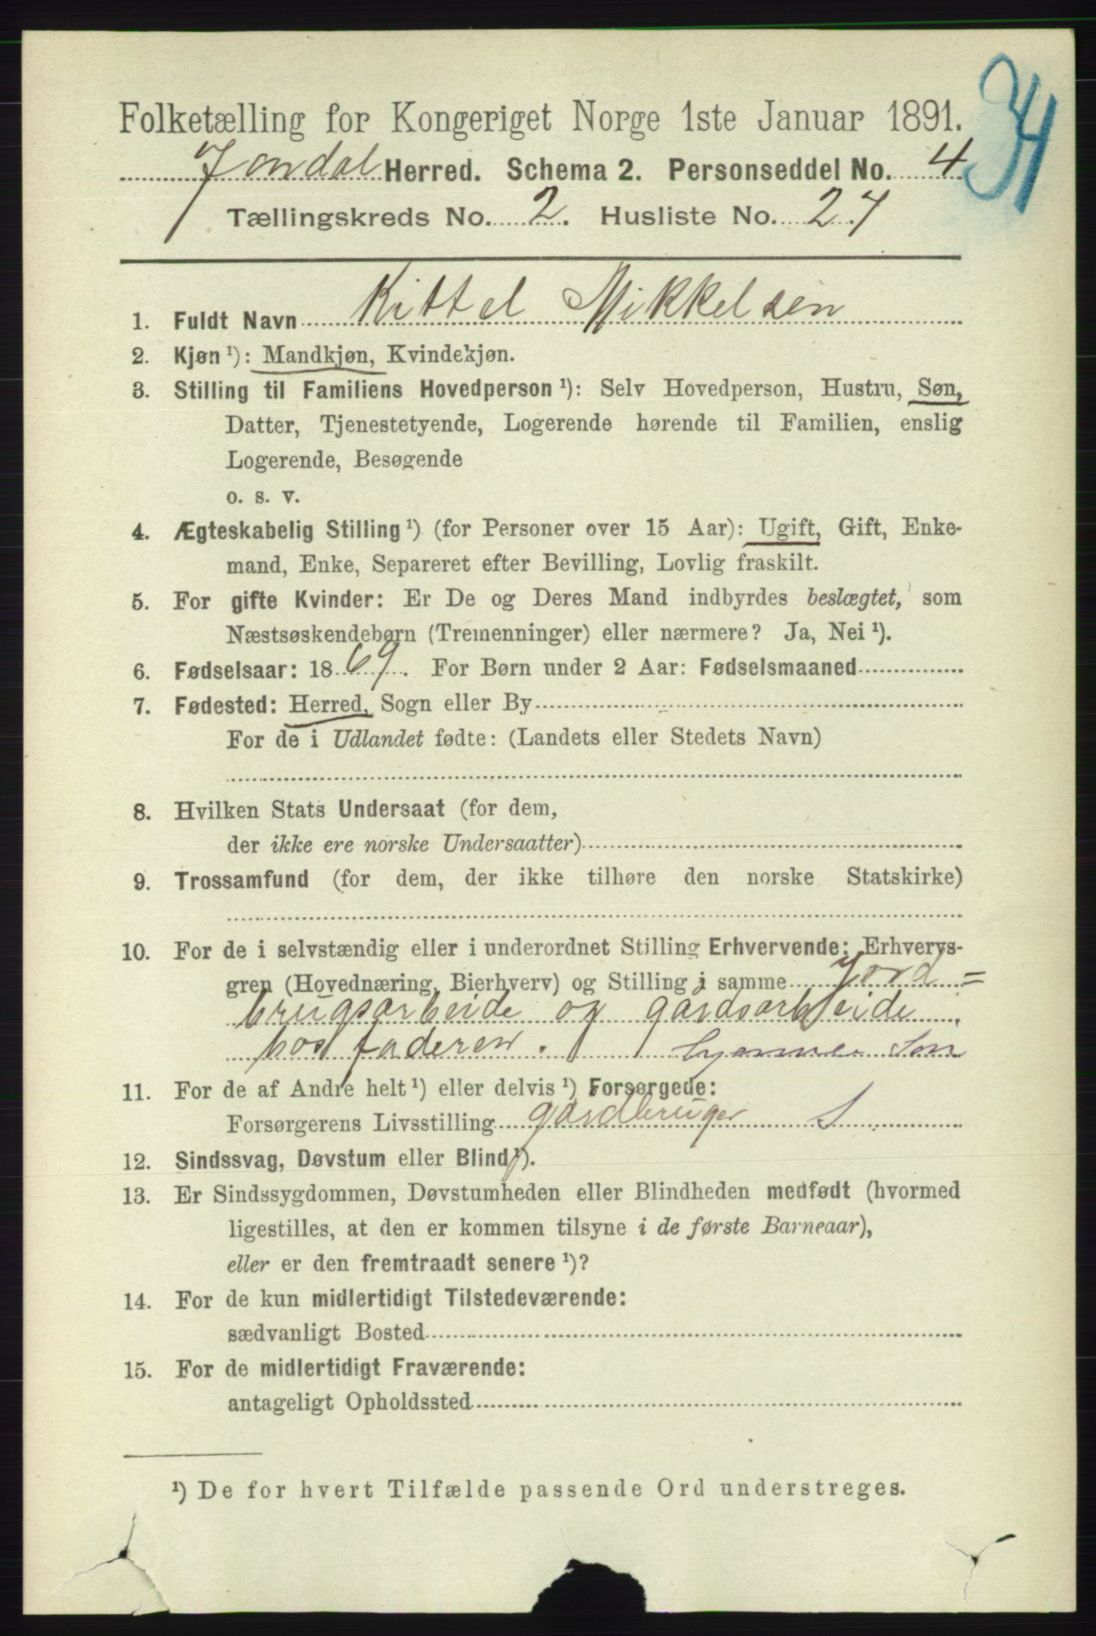 Folketælling for Kongeriget Norge 1ste Januar 1891.
34
Jondal Herred. Schema 2. Personseddel No. 4
Tællingskreds No. 2. Husliste No. 27
1. Fuldt Navn Kittel Mikkelsen
2. Kjøn ¹): Mandkjøn, Kvindekjøn.
3. Stilling til Familiens Hovedperson ¹): Selv Hovedperson, Hustru, Søn,
Datter, Tjenestetyende, Logerende hørende til Familien, enslig
Logerende, Besøgende
o. s. v.
4. Ægteskabelig Stilling ¹) (for Personer over 15 Aar): Ugift, Gift, Enke-
mand, Enke, Separeret efter Bevilling, Lovlig fraskilt.
5. For gifte Kvinder: Er De og Deres Mand indbyrdes beslægtet, som
Næstsøskendebørn (Tremenninger) eller nærmere? Ja, Nei ¹).
6. Fødselsaar: 1869. For Børn under 2 Aar: Fødselsmaaned
7. Fødested: Herred, Sogn eller By
For de i Udlandet fødte: (Landets eller Stedets Navn)
8. Hvilken Stats Undersaat (for dem,
der ikke ere norske Undersaatter)
9. Trossamfund (for dem, der ikke tilhøre den norske Statskirke)
10. For de i selvstændig eller i underordnet Stilling Erhvervende: Erhvervs-
gren (Hovednæring, Bierhverv) og Stilling i samme Jord=
brugsarbeide og gardsarbeide
hos faderen. hjemme Søn
11. For de af Andre helt ¹) eller delvis ¹) Forsørgede:
Forsørgerens Livsstilling gardbruger S
12. Sindssvag, Døvstum eller Blind ¹).
13. Er Sindssygdommen, Døvstumheden eller Blindheden medfødt (hvormed
ligestilles, at den er kommen tilsyne i de første Barneaar),
eller er den fremtraadt senere ¹)?
14. For de kun midlertidigt Tilstedeværende:
sædvanligt Bosted
15. For de midlertidigt Fraværende:
antageligt Opholdssted
¹) De for hvert Tilfælde passende Ord understreges.